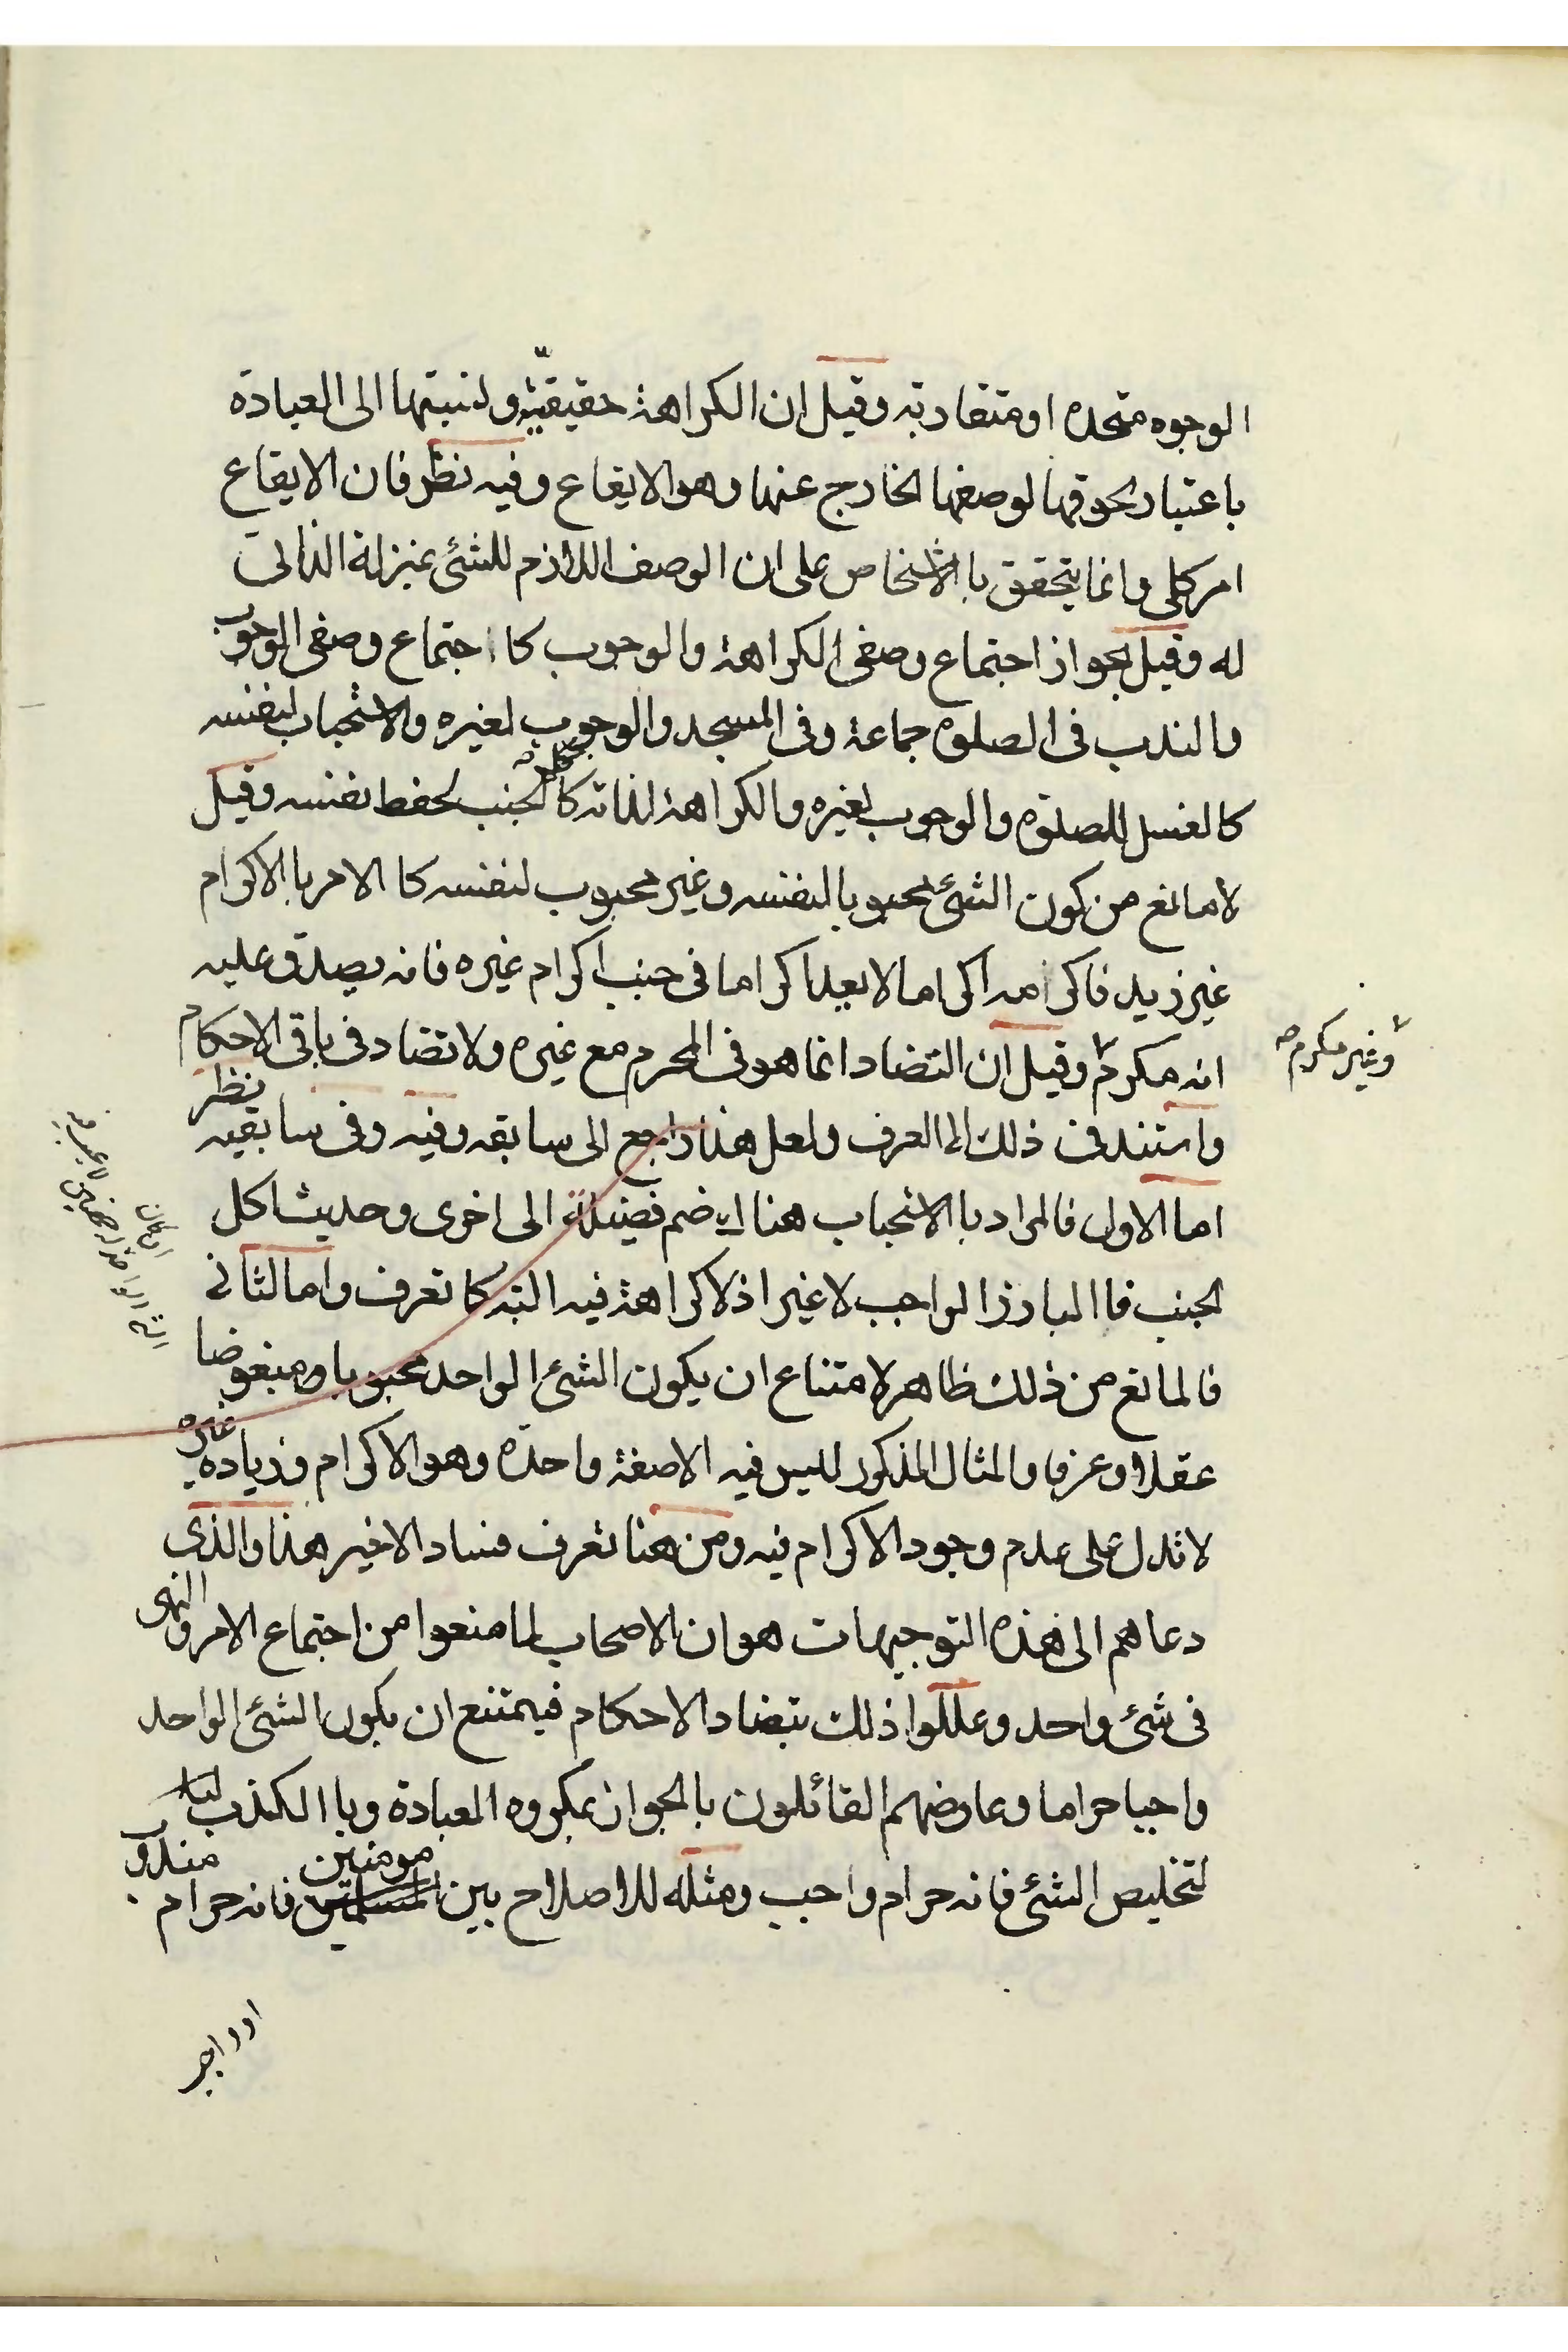 الوجوه متحده او متقاربه وقيل ان الكراهة حقيقيّة ونسبتها الى العبادة
باعتبار لحوقها لوصفها الخارج عنها وهو الايقاع وفيه نظر فان الايقاع
امر كلى وانما يتحقق باالاشخاص على ان الوصف اللازم للشئ بمنزلة الذاتى
له وقيل بجواز اجتماع وصفى الكراهة والوجوب كا اجتماع وصفى الوجوب
والندب فى الصلوة جماعة وفى المسجد والوجوب لغيره والاستحباب لنفسه
كالغسل للصلوة والوجوب لغيره والكراهة لذاته كا الجنب لحفظ نفسه وقيل
لا مانع من كون الشئ محبوبا لنفسه وغير محبوب لنفسه كا الامر باالاكرام
غير زيد فاكرامه اكراما لا يعد اكراما فى جنب اكرام غيره فانه يصدق عليه
انه مكرم وقيل ان التضاد انما هو فى المحرم مع غيره ولا تضاد فى باقى الاحكام
وغير مكرم صح
واستند فى ذلك الى العرف ولعل هذا راجع الى سابقه وفيه وفى سابقيه نظر
اما الاول فالمراد باالاستحباب هنا اى ضم فضيلة الى اخرى وحديث اكل
الجنب فاالبارز الواجب لا غير اذ لا كراهة فيه البته كا تعرف واما الثانى
فالمانع من ذلك ظاهر لامتناع ان يكون الشئ الواحد محبوبا ومبغوضا
عقلا وعرفا والمثال المذكور ليس فيه الا صفة واحدة وهو الاكرام وزيادة غيره
لا تدل على عدم وجود الاكرام فيه ومن هنا تعرف فساد الاخير هذا والذى
دعاهم الى هذه التوجيهات هو ان الاصحاب لما منعوا من اجتماع الامر والنهى
فى شئ واحد وعللوا ذلك بتضاد الاحكام فيمتنع ان يكون الشئ الواحد
واجبا حراما وعارضهم القائلون بالجواز بمكروه العبادة وبا الكذب
لتخليص الشئ فانه حرام واجب ومثله للاصلاح بين مومنين فانه حرام مندوب